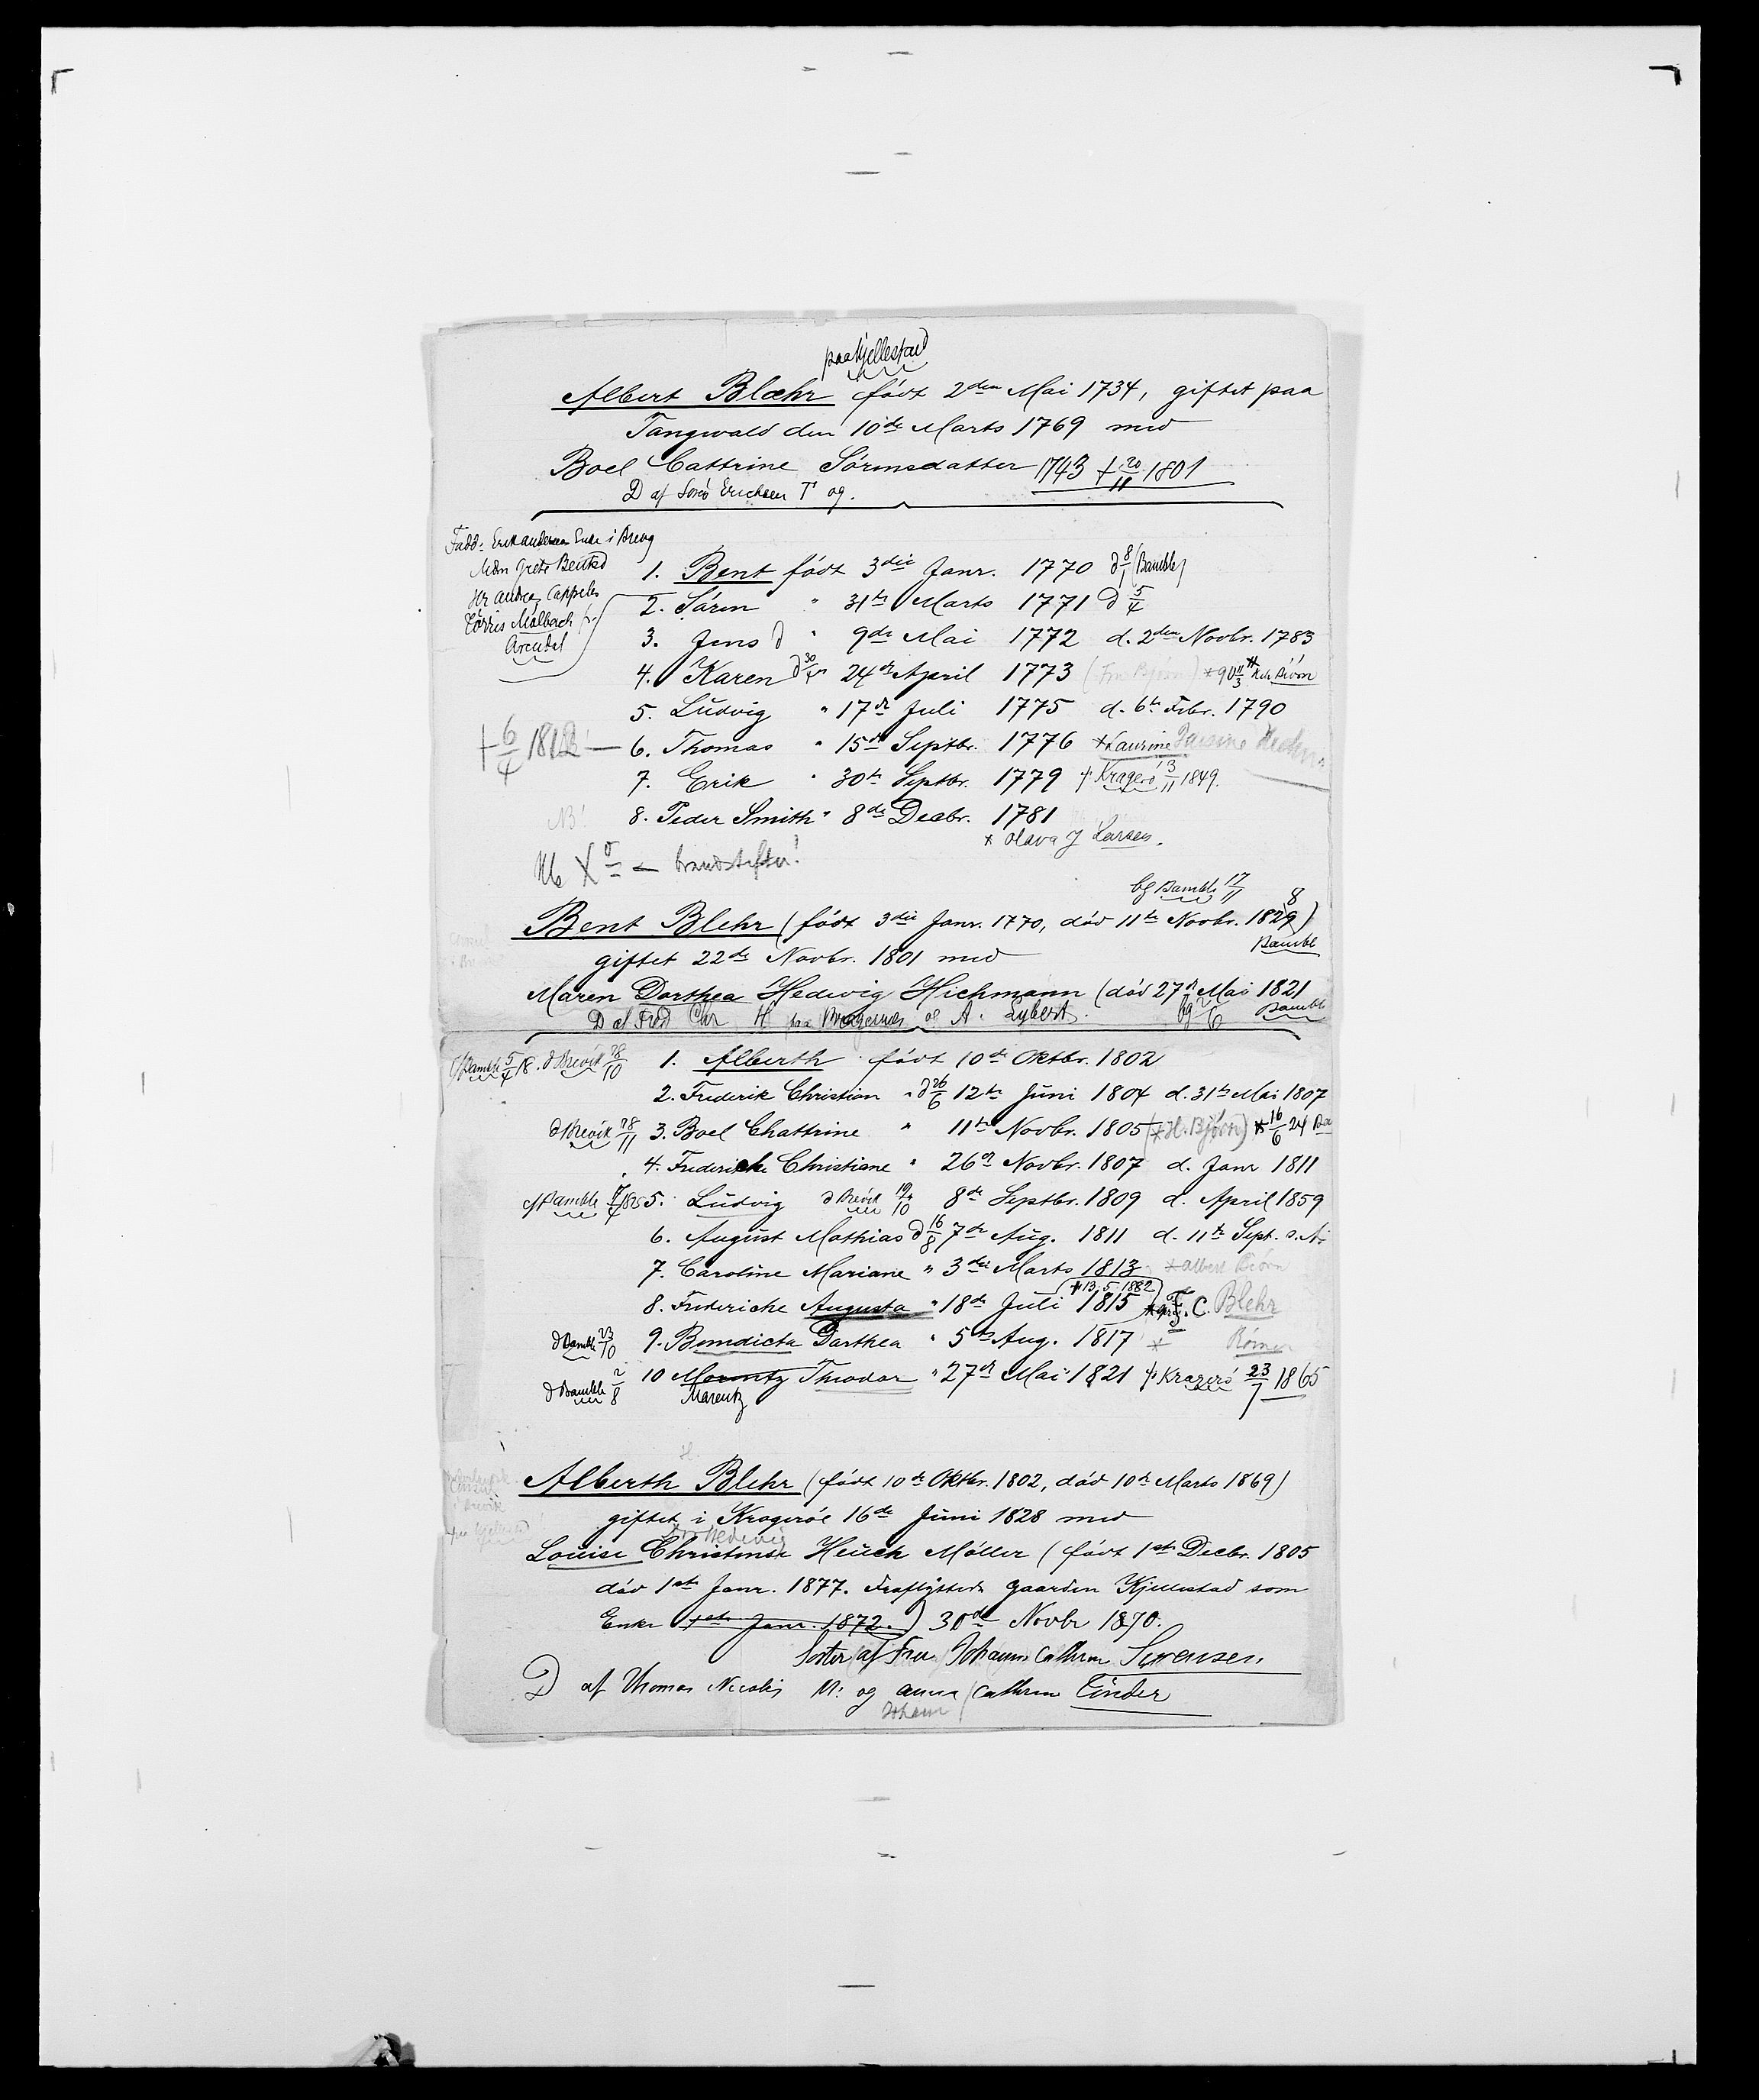 paa Kjellestad
Albert Blæhr født 2den Mai 1734, giftet paa
Tangwald den 10de Marts 1769 med
Boel Cattrine Sörensdatter 1743 † 20/11 1801
D af Sörö Erichsen T og.
Fadd: Erik Andersen i Brevg
Mdm Grete Bentsd
Hr Andreas Cappelen
Törris Malbach fr.
Arendal
1. Bent født 3die Janr. 1770 d 8/1 (Bamble)
2. Sören " 31te Marts 1771 d 5/4
3. Jens d " 9de Mai 1772 d. 2den Novbr. 1783
4. Karen d 30/4 " 24de April 1773 (Fru Bjørn) * 90 11/3 Björn
5. Ludvig " 17de Juli 1775 d. 6te Febr. 1790
† 6/4 1812 — 6. Thomas " 15de Septbr. 1776 * Laurine
7. Erik " 30te Septbr. 1779 † Kragerö 3/11 1849.
NB! 8. Peder Smith " 8de Decbr. 1781
* Olava J Larsen.
brandstifter!
bg Bamble 17/11
Bent Blehr (født 3die Janr. 1770, död 11te Novbr. 1829) 8
Bamble
giftet 22de Novbr. 1801 med
Maren Dorthea Hedevig Hichmann (död 27de Mai 1821
D af Fred Chr H paa Bragernes og A. Lybert. bg 1/6 Bamble
c/Bamble 5/4 18. d Brevik 28/10 1. Alberth født 10de Oktbr. 1802
2. Frederik Christian " d 26/6 12te Juni 1804 d. 31te Mai 1807
d Brevik 28/11 3. Boel Chattrine " 11te Novbr. 1805 (* H. Bjørn) * 16/6 24 Ba
4. Frederiche Christiane " 26de Novbr. 1807 d. Janr 1811
c/Bamble 5. Ludvig d Brevik 19/10 8de Septbr. 1809 d. April 1859
6. August Mathias d 16/8 7de Aug. 1811 d. 11te Sept. s. A.
7. Caroline Mariane " 3die Marts 1813 * Albert Björn
† 13/5 1882
8. Frederiche Augusta " 18de Juli 1815 * F. C. Blehr
d Bamble 23/10 9. Benedicta Darthea " 5te Aug. 1817 * Römer
d Bamble 2/8 10 Morentz Theodor " 27de Mai 1821 † Kragerö 23/7 1865
Marentz
Alberth Blehr (født 10de Oktbr. 1802, död 10de Marts 1869)
giftet i Kragerøe 16de Juni 1828 med
Hedevig
Louise Christense Heuch Möller (født 1ste Decbr. 1805
död 1ste Janr. 1877. Fraflyttede gaarden Kjellestad som
Enke 1ste Janr. 1872.) 30de Novbr 1870.
Söster af Fru Johanne Cathrine Sörensen.
D af Thomas Nicolai M: og Anna Cathrine Tinder
Johan